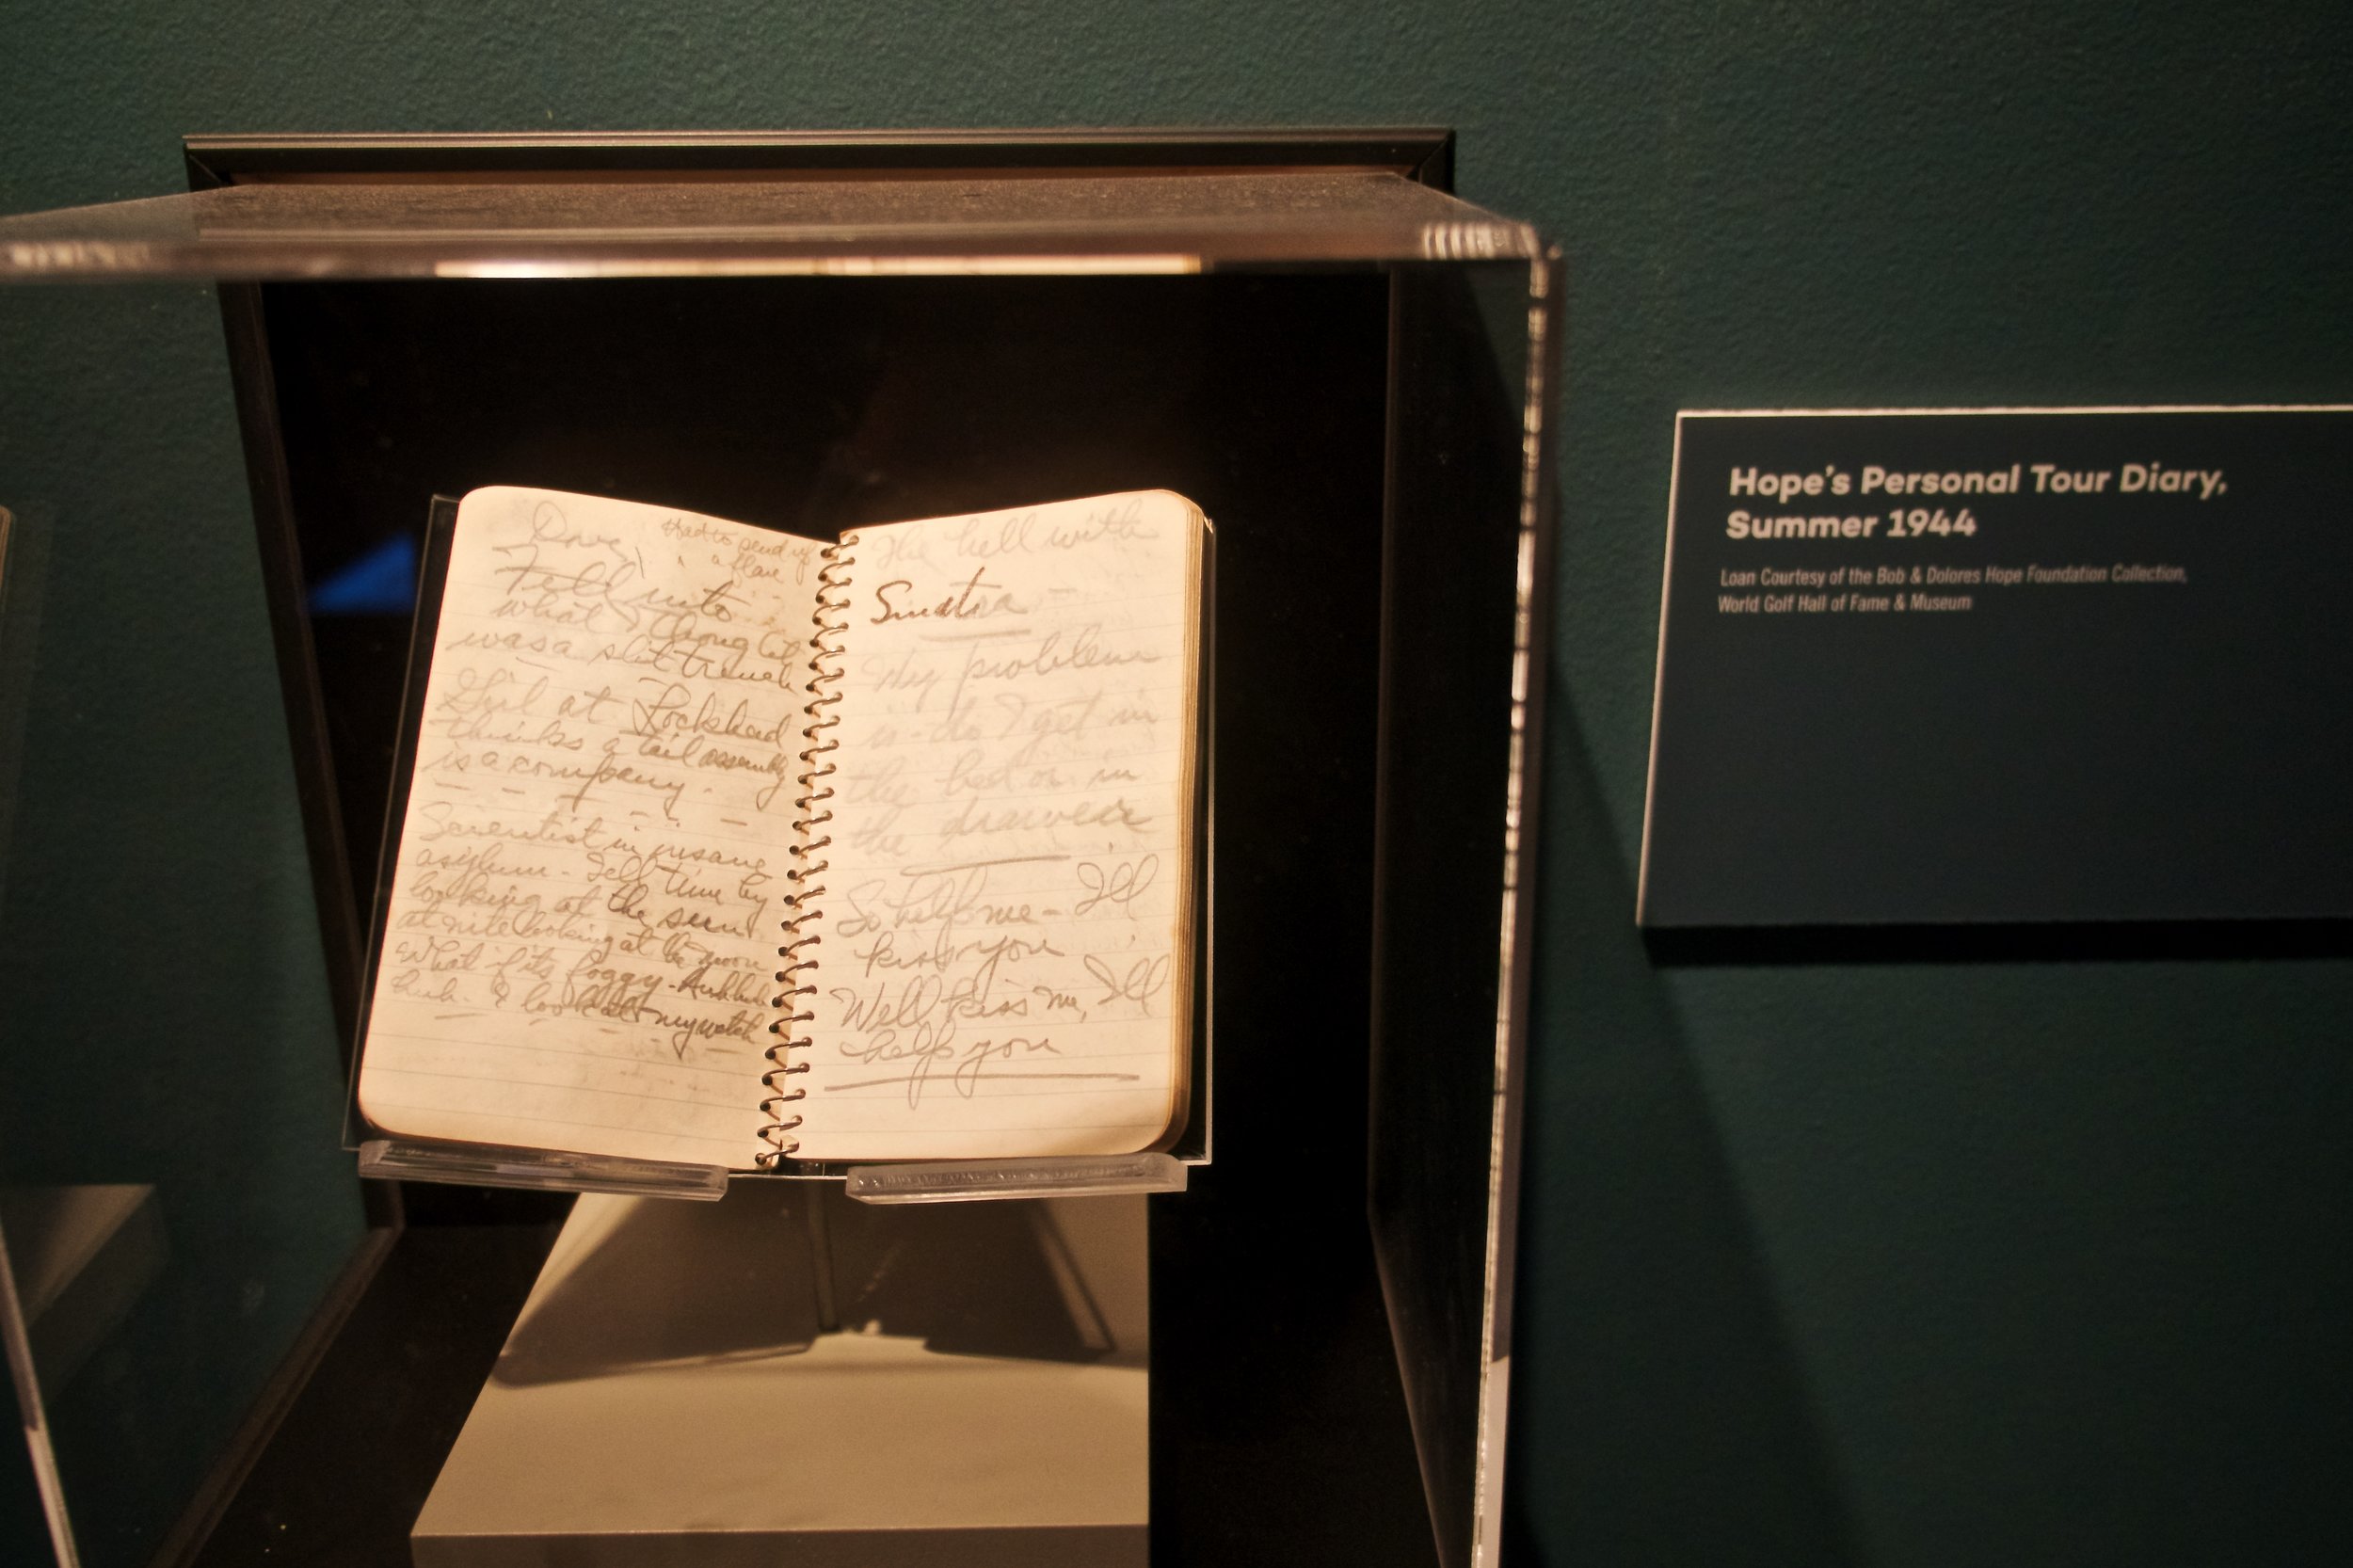 Dove
Had to send up
a flare
Fell into
what I thought
was a slit trench
Girl at Lockheed
thinks a tail assembly
is a company.
Scientist in insane
asylum - Tell time by
looking at the sun.
at nite looking at the moon
What if its foggy -
I look at my watch
The hell with
Sinatra -
My problem
is - do I get in
the bed or in
the drawer
So help me - Ill
kiss you
Well kiss me, Ill
help you
Hope's Personal Tour Diary,
Summer 1944
Loan Courtesy of the Bob & Dolores Hope Foundation Collection,
World Golf Hall of Fame & Museum